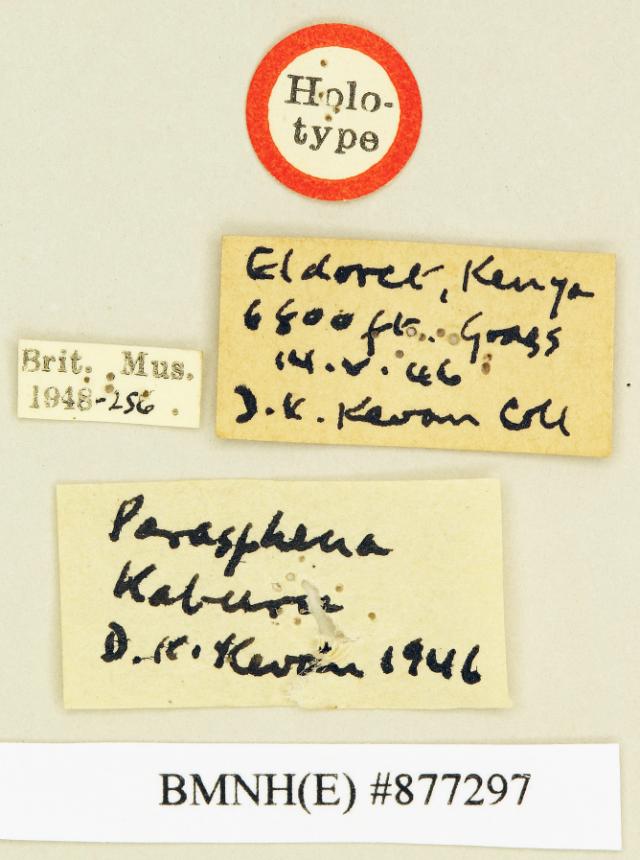 Holo-
type
Eldoret, Kenya
6800 ft. Grass
14.V.46
D.K. Kevan Coll
Brit. Mus.
1948-256
Parasphena
Kaburu
D.K. Kevan 1946
BMNH(E) #877297